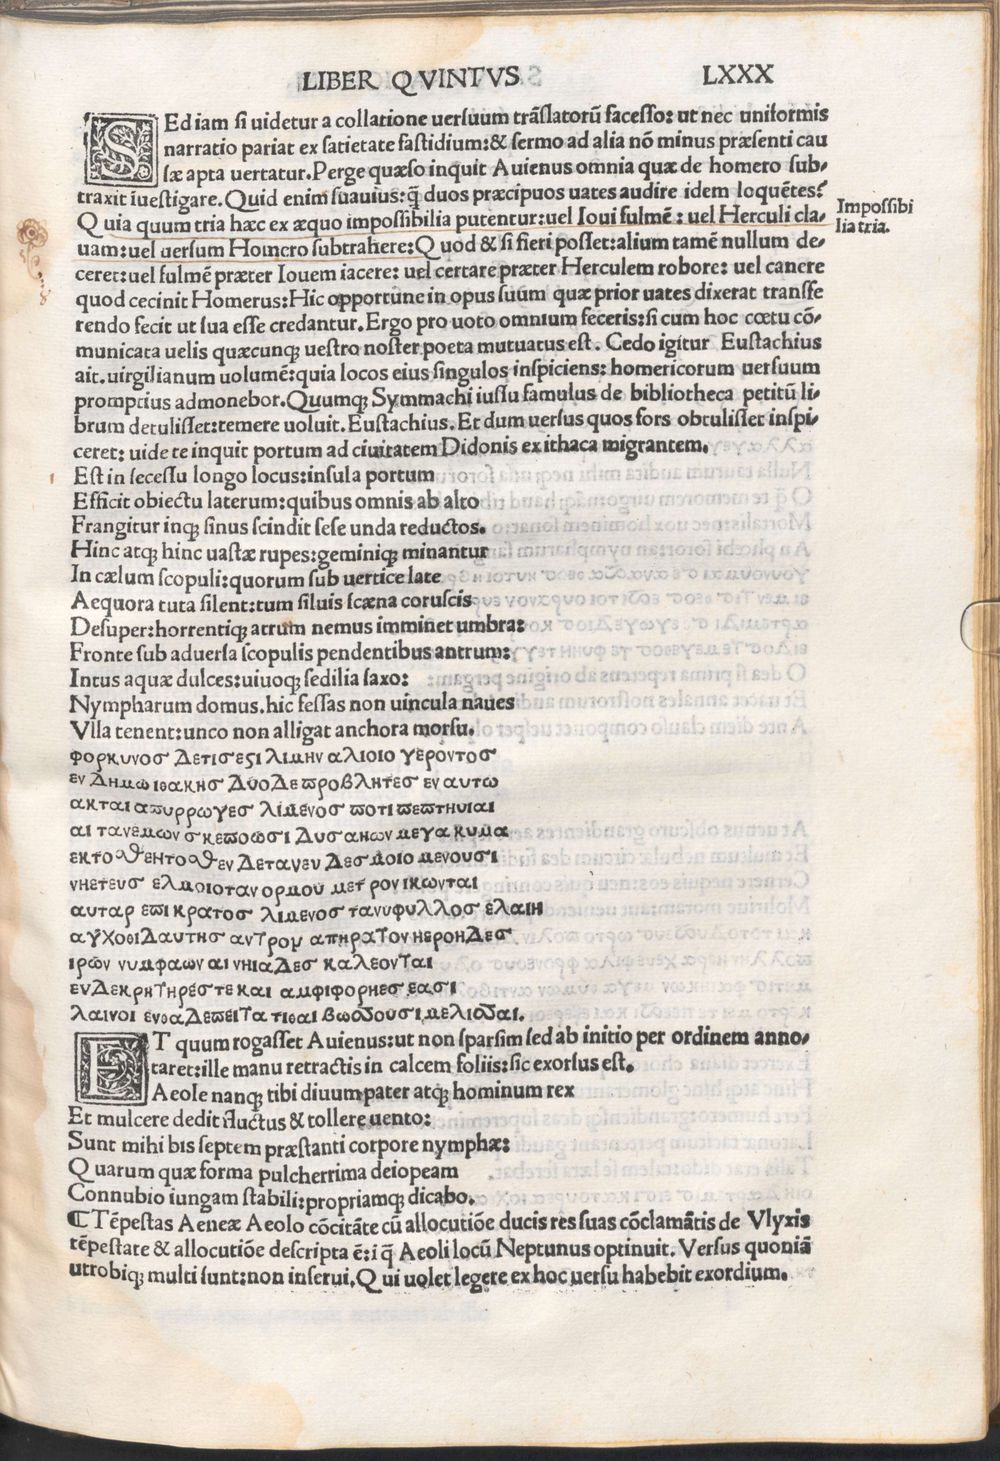 LIBER QVINTVS LXXX
SEd iam si uidetur a collatione uersuum trãslatorũ facesso: ut nec uniformis
narratio pariat ex satietate fastidium:& sermo ad alia nõ minus præsenti cau
sæ apta uertatur. Perge quæso inquit Auienus omnia quæ de homero sub-
traxit ĩuestigare. Quid enim suauius: q̃ duos præcipuos uates audire idem loquẽtes?
Quia quum tria hæc ex æquo impossibilia putentur: uel Ioui fulmẽ: uel Herculi cla-
Impossibi
lia tria.
uam: uel uersum Homero subtrahere: Quod & si fieri posset: alium tamẽ nullum de-
ceret: uel fulmẽ præter Iouem iacere: uel certare præter Herculem robore: uel canere
quod cecinit Homerus: Hic opportune in opus suum quæ prior uates dixerat transfe
rendo fecit ut sua esse credantur. Ergo pro uoto omnium feceris: si cum hoc cœtu cõ-
municata uelis quæcunq; uestro noster poeta mutuatus est. Cedo igitur Eustachius
ait. uirgilianum uolumẽ: quia locos eius singulos inspiciens: homericorum uersuum
promptius admonebor. Quumq; Symmachi iussu famulus de bibliotheca petitũ li-
brum detulisset: temere uoluit. Eustachius. Et dum uersus quos fors obtulisset inspi-
ceret: uide te inquit portum ad ciuitatem Didonis ex ithaca migrantem.
Est in secessu longo locus: insula portum
Efficit obiectu laterum: quibus omnis ab alto
Frangitur inq; sinus scindit sese unda reductos.
Hinc atq; hinc uastæ rupes: geminiq; minantur
In cælum scopuli: quorum sub uertice late
Aequora tuta silent: tum siluis scæna coruscis
Desuper: horrentiq; atrum nemus imminet umbra:
Fronte sub aduersa scopulis pendentibus antrum:
Intus aquæ dulces: uiuoq; sedilia saxo:
Nympharum domus. hic fessas non uincula naues
Vlla tenent: unco non alligat anchora morsu.
φορκυνοσ Δετισεϛι λιμην αλιοιο γεροντοσ
εν Δημω ιθακησ Δυο Δε προβλητεσ εν αυτω
ακται απυρρωγεσ λιμενοσ ποτι πεπτηυιαι
αι τανεμων σκεποωσι Δυσαηων μεγα κυμα
εκτοθεν εντοθεν Δετανευ Δεσμοιο μενουσι
νηετευσ ελμοιοταν ορμου μετρον ικωνται
αυταρ επι κρατοσ λιμενοσ τανυφυλλοσ ελαιη
αγχοθι Δαυτησ αντρον απηρατον ηεροηΔεσ
ιρων νυμφαων αι νηιαΔεσ καλεονται
εν Δε κρητηρεστε και αμφιφορηεσ εασι
λαινοι ενθα Δ επειτα τιθαι βωσσουσι μελισσαι.
ET quum rogasset Auienus: ut non sparsim sed ab initio per ordinem anno-
taret: ille manu retractis in calcem foliis: sic exorsus est.
Aeole nanq; tibi diuum pater atq; hominum rex
Et mulcere dedit fluctus & tollere uento:
Sunt mihi bis septem præstanti corpore nymphæ:
Quarum quæ forma pulcherrima deiopeam
Connubio iungam stabili: propriamq; dicabo.
¶Tẽpestas Aeneæ Aeolo cõcitãte cũ allocutiõe ducis res suas cõclamãtis de Vlyxis
tẽpestate & allocutiõe descripta ẽ: ĩ q̃ Aeoli locũ Neptunus optinuit. Versus quoniã
utrobiq; multi sunt: non inserui. Qui uolet legere ex hoc uersu habebit exordium.